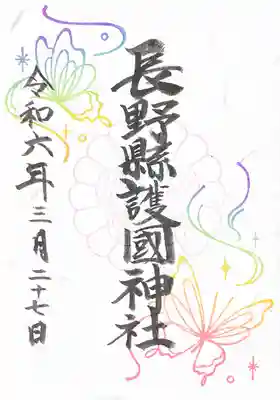 長野縣護國神社
令和六年三月二十七日